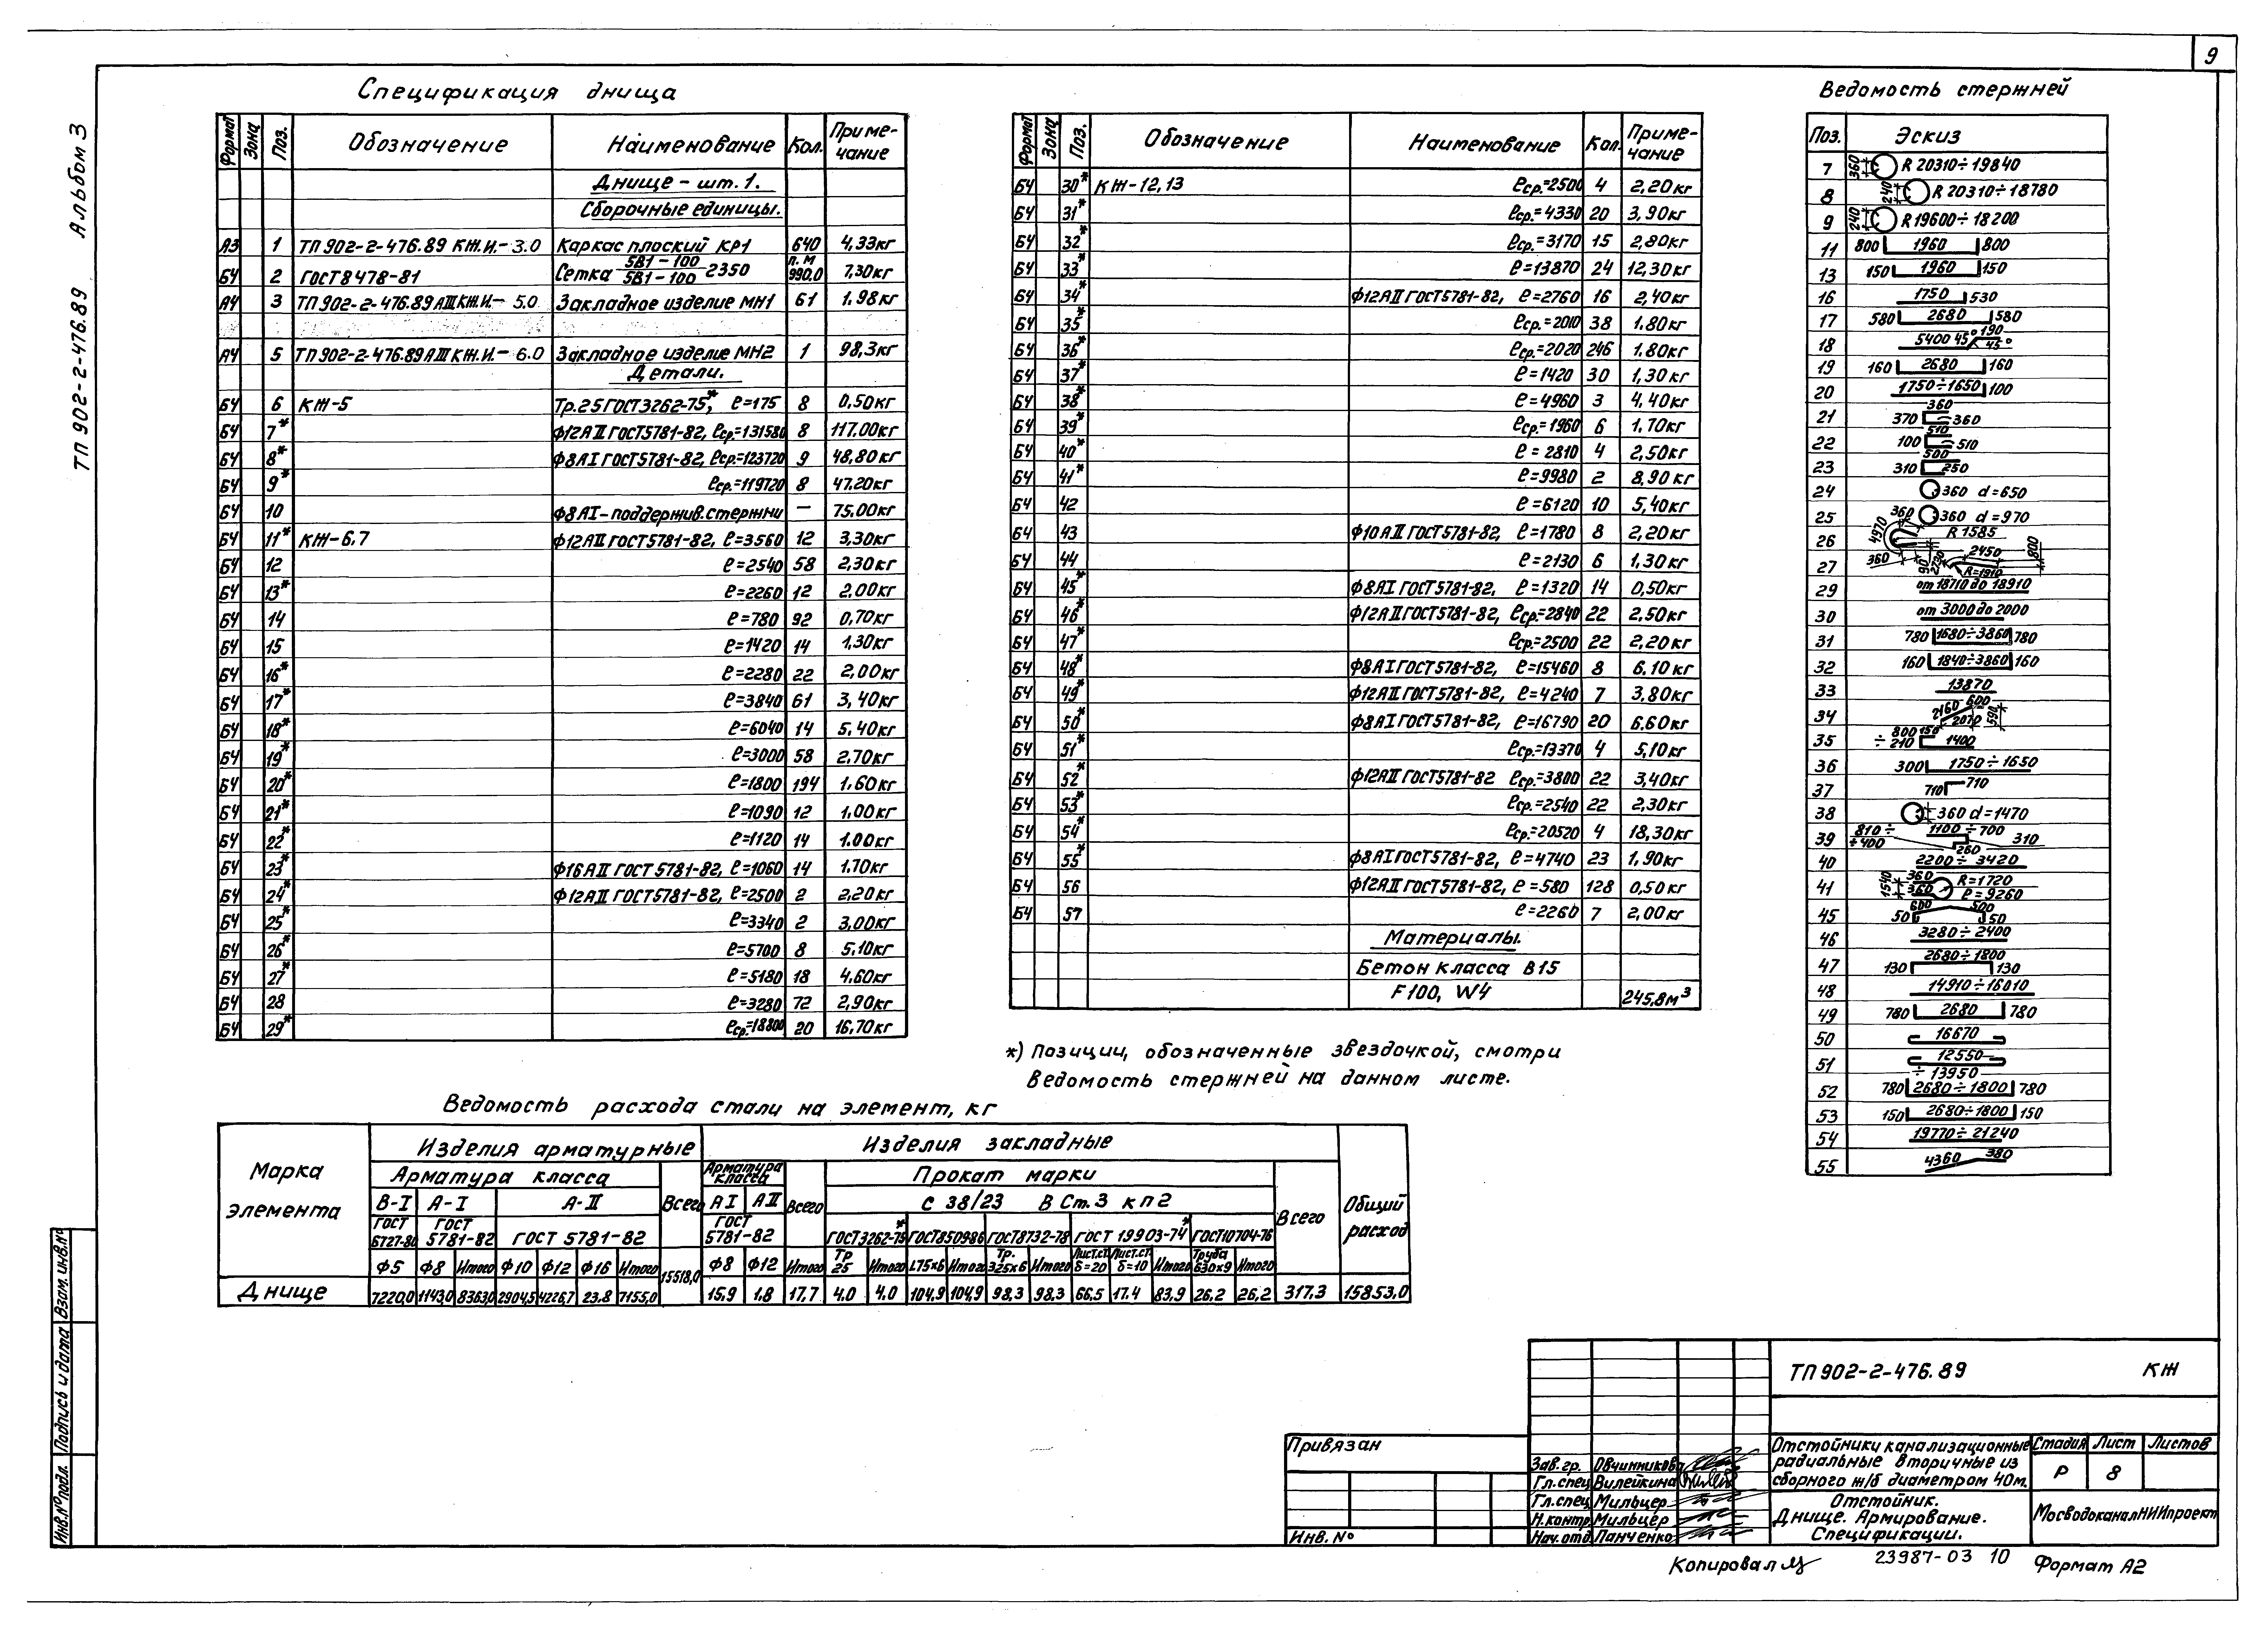 9
ТП 902-2-476.89 Альбом 3
Спецификация днища
Формат Зона Поз. Обозначение Наименование Кол. Примечание
Днище – шт. 1.
Сборочные единицы.
А3 1 ТП 902-2-476.89 КЖ.И.- 3.0 Каркас плоский КР1 640 4,33кг
БЧ 2 ГОСТ 8478-81 Сетка 5В1-100/5В1-100 2350 п.м 990.0 7,30кг
А4 3 ТП 902-2-476.89 АIII КЖ.И.- 5.0 Закладное изделие МН1 61 1.98кг
А4 5 ТП 902-2-476.89 АIII КЖ.И.- 6.0 Закладное изделие МН2 1 98,3кг
Детали.
БЧ 6 КЖ-5 Тр.25 ГОСТ 3262-75*, ℓ=175 8 0,50кг
БЧ 7* Ф12АII ГОСТ5781-82, ℓср.=131580 8 117.00кг
БЧ 8* Ф8АI ГОСТ5781-82, ℓср.=123720 9 48,80кг
БЧ 9* ℓср.=119720 8 47.20кг
БЧ 10 Ф8АI-поддержив.стержни – 75.00кг
БЧ 11* КЖ-6.7 Ф12АII ГОСТ5781-82, ℓ=3560 12 3,30кг
БЧ 12 ℓ=2540 58 2,30кг
БЧ 13* ℓ=2260 12 2,00кг
БЧ 14 ℓ=780 92 0,70кг
БЧ 15 ℓ=1420 14 1,30кг
БЧ 16* ℓ=2280 22 2,00кг
БЧ 17* ℓ=3840 61 3,40кг
БЧ 18* ℓ=6040 14 5,40кг
БЧ 19* ℓ=3000 58 2,70кг
БЧ 20* ℓ=1800 194 1.60кг
БЧ 21* ℓ=1090 12 1,00кг
БЧ 22* ℓ=1120 14 1.00кг
БЧ 23* Ф16АII ГОСТ 5781-82, ℓ=1060 14 1.70кг
БЧ 24* Ф12АII ГОСТ 5781-82, ℓ=2500 2 2,20кг
БЧ 25* ℓ=3340 2 3,00кг
БЧ 26* ℓ=5700 8 5.10кг
БЧ 27* ℓ=5180 18 4.60кг
БЧ 28 ℓ=3280 72 2,90кг
БЧ 29* ℓср.=18800 20 16,70кг
Формат Зона Поз. Обозначение Наименование Кол. Примечание
БЧ 30* КЖ-12,13 ℓср.=2500 4 2,20кг
БЧ 31* ℓср.=4330 20 3,90кг
БЧ 32* ℓср.=3170 15 2,80кг
БЧ 33* ℓ=13870 24 12,30кг
БЧ 34* Ф12АII ГОСТ5781-82, ℓ=2760 16 2,40кг
БЧ 35* ℓср.=2010 38 1.80кг
БЧ 36* ℓср.=2020 246 1.80кг
БЧ 37* ℓ=1420 30 1,30кг
БЧ 38* ℓ=4960 3 4,40кг
БЧ 39* ℓср.=1960 6 1.70кг
БЧ 40* ℓ=2810 4 2,50кг
БЧ 41* ℓ=9980 2 8,90кг
БЧ 42 ℓ=6120 10 5,40кг
БЧ 43 Ф10АII ГОСТ5781-82, ℓ=1780 8 2,20кг
БЧ 44 ℓ=2130 6 1,30кг
БЧ 45* Ф8АI ГОСТ5781-82, ℓ=1320 14 0,50кг
БЧ 46* Ф12АII ГОСТ5781-82, ℓср.=2840 22 2,50кг
БЧ 47* ℓср.=2500 22 2,20кг
БЧ 48* Ф8АI ГОСТ5781-82, ℓ=15460 8 6.10кг
БЧ 49* Ф12АII ГОСТ5781-82, ℓ=4240 7 3.80кг
БЧ 50* Ф8АI ГОСТ5781-82, ℓ=16790 20 6.60кг
БЧ 51* ℓср.=13370 4 5,10кг
БЧ 52* Ф12АII ГОСТ5781-82 ℓср.=3800 22 3,40кг
БЧ 53* ℓср.=2540 22 2,30кг
БЧ 54* ℓср.=20520 4 18,30кг
БЧ 55* Ф8АI ГОСТ5781-82, ℓ=4740 23 1,90кг
БЧ 56 Ф12АII ГОСТ5781-82, ℓ=580 128 0,50кг
БЧ 57 ℓ=2260 7 2,00кг
Материалы.
Бетон класса В15
F100, W4 245,8м³
*) Позиции, обозначенные звездочкой, смотри
Ведомость стержней на данном листе.
Ведомость стержней
Поз. Эскиз
7 360 R 20310÷19840
8 240 R 20310÷18780
9 240 R19600÷18200
11 800 1960 800
13 150 1960 150
16 1750 530
17 580 2680 580
18 5400 45° 190 45°
19 160 2680 160
20 1750÷1650 100
21 370 360 360
22 100 510 510
23 310 500 250
24 360 d=650
25 360 d=970
26 4970 360 R 1585
27 360 90 2730 R=1910 2450 800
29 от 18710 до 18910
30 от 3000 до 2000
31 780 1680÷3860 780
32 160 1840÷3860 160
33 13870
34 2160 600 2070 590
35 800÷210 150 1400
36 300 1750÷1650
37 710 710
38 360 d=1470
39 810÷÷400 1100÷700 260 310
40 2200÷3420
41 1540 360 360 R=1720 ℓ=9260
45 50 600 500 50
46 3280÷2400
47 130 2680÷1800 130
48 14910÷16010
49 780 2680 780
50 16670
51 12550÷13950
52 780 2680÷1800 780
53 150 2680÷1800 150
54 19770÷21240
55 4360 380
Ведомость расхода стали на элемент, кг
Марка элемента Изделия арматурные Изделия закладные Общий расход
Арматура класса Всего Арматура класса Всего Прокат марки Всего
В-I А-I А-II АI АII С 38/23 В Ст.3 кп2
ГОСТ 6727-80 ГОСТ 5781-82 ГОСТ 5781-82 ГОСТ 5781-82 ГОСТ3262-75* ГОСТ8509-86 ГОСТ8732-78 ГОСТ 19903-74* ГОСТ10704-76
Ф5 Ф8 Итого Ф10 Ф12 Ф16 Итого 15518,0 Ф8 Ф12 Итого Тр 25 Итого L75х6 Итого Тр. 325х6 Итого Лист.ст. δ=20 Лист.ст. δ=10 Итого Труба 630х9 Итого
Днище 7220,0 1143,0 8363,0 2904,5 4226,7 23.8 7155,0 15,9 1.8 17.7 4.0 4.0 104,9 104,9 98.3 98.3 66.5 17.4 83,9 26.2 26,2 317.3 15853,0
Взам. инв.№
Подпись и дата
Инв.№ подл.
Привязан
Инв. №
Зав. гр. Овчинникова
Гл. спец Вилейкина
Гл. спец Мильцер
Н. контр. Мильцер
Нач. отд. Панченко
ТП 902-2-476.89 КЖ
Отстойники канализационные
радиальные вторичные из
сборного ж/б диаметром 40м.
Стадия Лист Листов
Р 8
Отстойник.
Днище. Армирование.
Спецификации.
МосводоканалНИИпроект
Копировал
23987-03 10
Формат А2